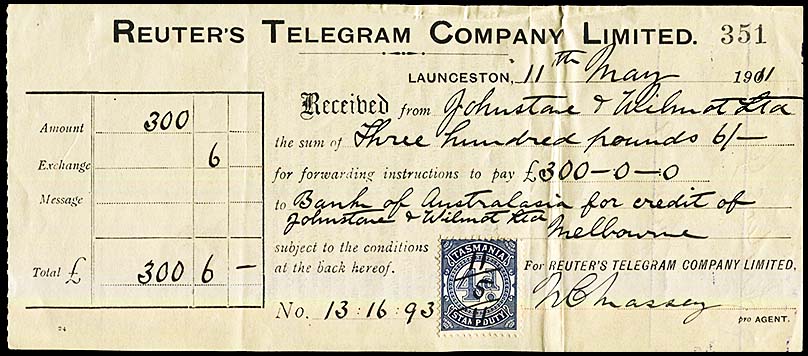 REUTER'S TELEGRAM COMPANY LIMITED. 351
LAUNCESTON, 11th May 1911
Received from Johnstone & Wilmot Ltd
the sum of Three hundred pounds 6/-
for forwarding instructions to pay £300-0-0
to Bank of Australasia for credit of
Johnstone & Wilmot Ltd Melbourne
subject to the conditions
at the back hereof.
Amount 300
Exchange 6
Message
Total £ 300 6 -
TASMANIA
11
5
11
STAMP DUTY
For REUTER'S TELEGRAM COMPANY LIMITED,
No. 13:16:93
Massey
pro AGENT.
24